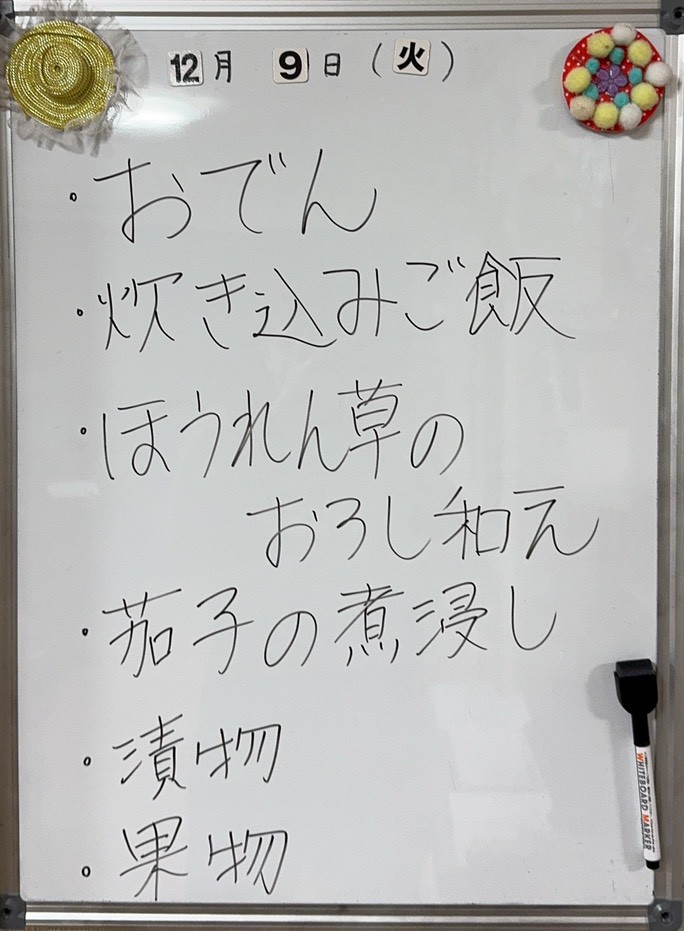 12月 9日（火）
・おでん
・炊き込みご飯
・ほうれん草の
おろし和え
・茄子の煮浸し
・漬物
・果物
WHITEBOARD MARKER